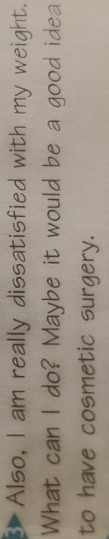 3 Also, I am really dissatisfied with my weight.
What can I do? Maybe it would be a good idea
to have cosmetic surgery.